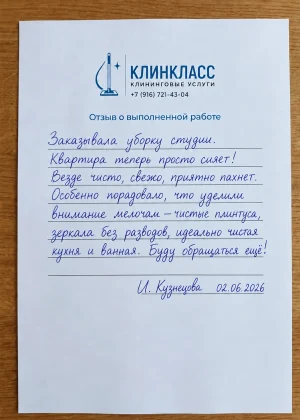 КЛИНКЛАСС
КЛИНИНГОВЫЕ УСЛУГИ
+7 (916) 721-43-04
Отзыв о выполненной работе
Заказывала уборку студии.
Квартира теперь просто сияет!
Везде чисто, свежо, приятно пахнет.
Особенно порадовало, что уделили
внимание мелочам – чистые плинтуса,
зеркала без разводов, идеально чистая
кухня и ванная. Буду обращаться ещё!
И. Кузнецова 02.06.2026